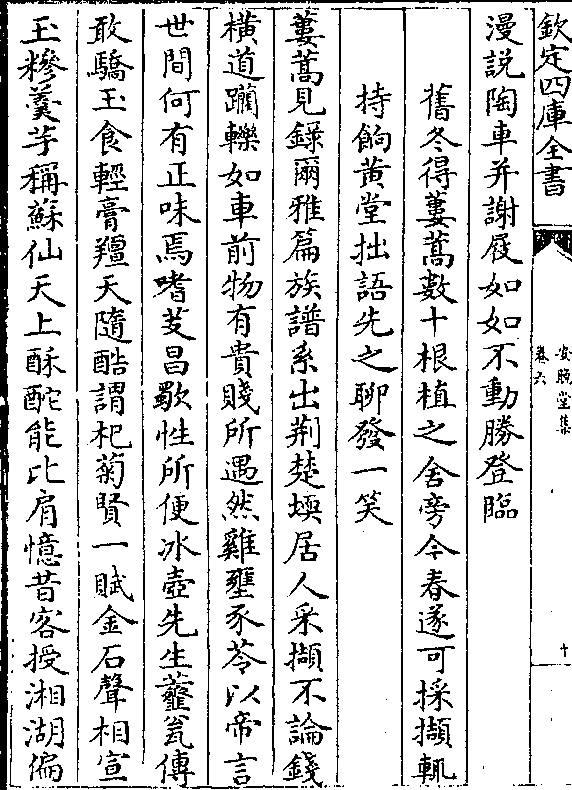 欽定四庫全書
安晚堂集
卷六
十
漫說陶車并謝屐如如不動勝登臨
舊冬得蔞蒿數十根植之舍旁今春遂可採擷輒
持餉黃堂拙語先之聊發一笑
蔞蒿見錄爾雅篇族譜系出荆楚堧居人采擷不論錢
橫道躪轢如車前物有貴賤所遇然雞壅豕苓以帝言
世間何有正味焉嗜芰昌歜性所便冰壺先生虀瓮傳
敢驕玉食輕膏羶天隨酷謂杞菊賢一賦金石聲相宣
玉糝羹芋稱蘇仙天上酥酡能比肩憶昔客授湘湖偏